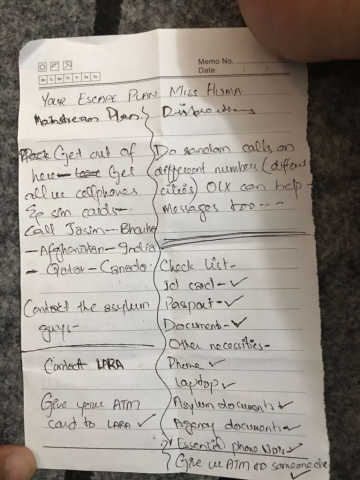 Memo No.
Date
YOUR ESCAPE PLAN MISS HUMA
Mainstream Plan
Distractions
Get out of
here Get
all ur cellphones
& sim cards
Call Jasim--
-Afghanistan-India
-Qatar-Canada.
Contact the asylum
guys-
Contact LARA
Give your ATM
card to LARA ✓
Do random calls on
different number (different
cities) OLX can help-
Messages too---
Check list-
Id card-✓
Passport-✓
Document-✓
Other necessities-
Phone ✓
Laptop ✓
Asylum documents ✓
Agency documents ✓
Essential phone No's ✓
Give ur ATM to someone else
✓